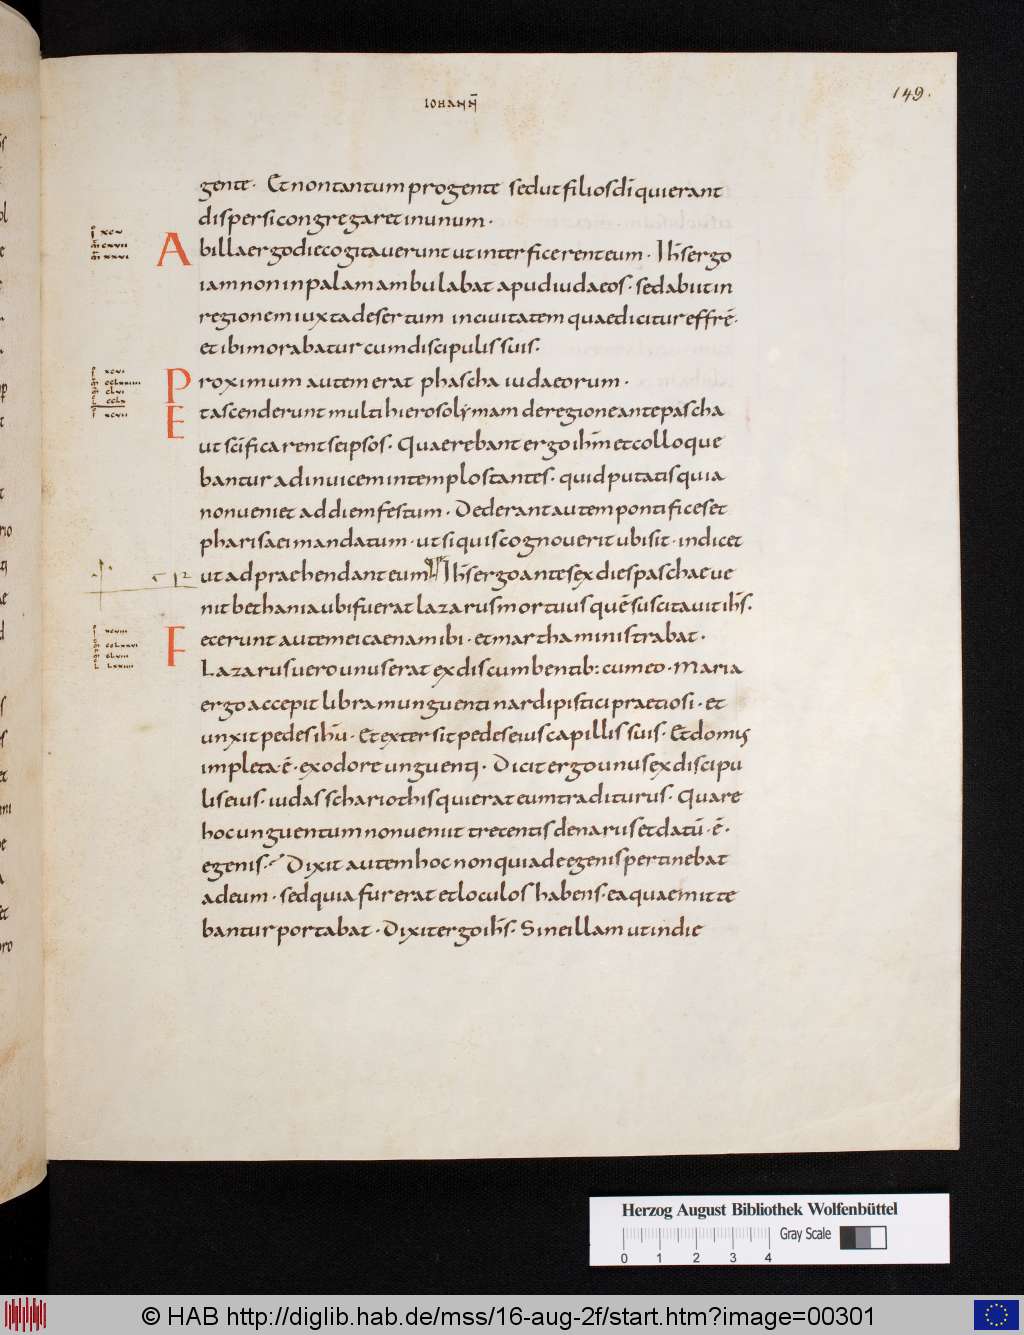 IOHANN̄
149.
gente · Et non tantum pro gente sed ut filios dī qui erant
dispersi congregaret in unum ·
Ab illa ergo die cogitaverunt ut interficerent eum · Ih̄s ergo
iam non in palam ambulabat apud iudaeos · sed abiit in
regionem iuxta desertum in civitatem quae dicitur effrē·
et ibi morabatur cum discipulis suis·
Proximum autem erat phascha iudaeorum ·
Et ascenderunt multi hierosolymam de regione ante pascha
ut sc̄ificarent se ipsos · Quaerebant ergo ih̄m et colloque
bantur ad invicem in templo stantes · quid putatis quia
non veniet ad diem festum · Dederant autem pontifices et
pharisaei mandatum · ut si quis cognoverit ubi sit · indicet
ut adpraehendant eum Ih̄s ergo ante sex dies paschae ve
nit bethania ubi fuerat lazarus mortuus quē suscitavit ih̄s·
Fecerunt autem ei caenam ibi · et martha ministrabat ·
Lazarus vero unus erat ex discumbentib: cum eo · Maria
ergo accepit libram unguenti nardi pistici praetiosi · et
unxit pedes ih̄u · Et extersit pedes eius capillis suis · Et domus
impleta ē · ex odore unguenti · Dicit ergo unus ex discipu
lis eius · iudas schariothis qui erat eum traditurus · Quare
hoc unguentum non veniit trecentis denariis et datū · ē ·
egenis · Dixit autem hoc non quia de egenis pertinebat
ad eum · sed quia fur erat et loculos habens · ea quae mitte
bantur portabat · Dixit ergo ih̄s · Sine illam ut in die
Herzog August Bibliothek Wolfenbüttel
0 1 2 3 4
Gray Scale
© HAB http://diglib.hab.de/mss/16-aug-2f/start.htm?image=00301